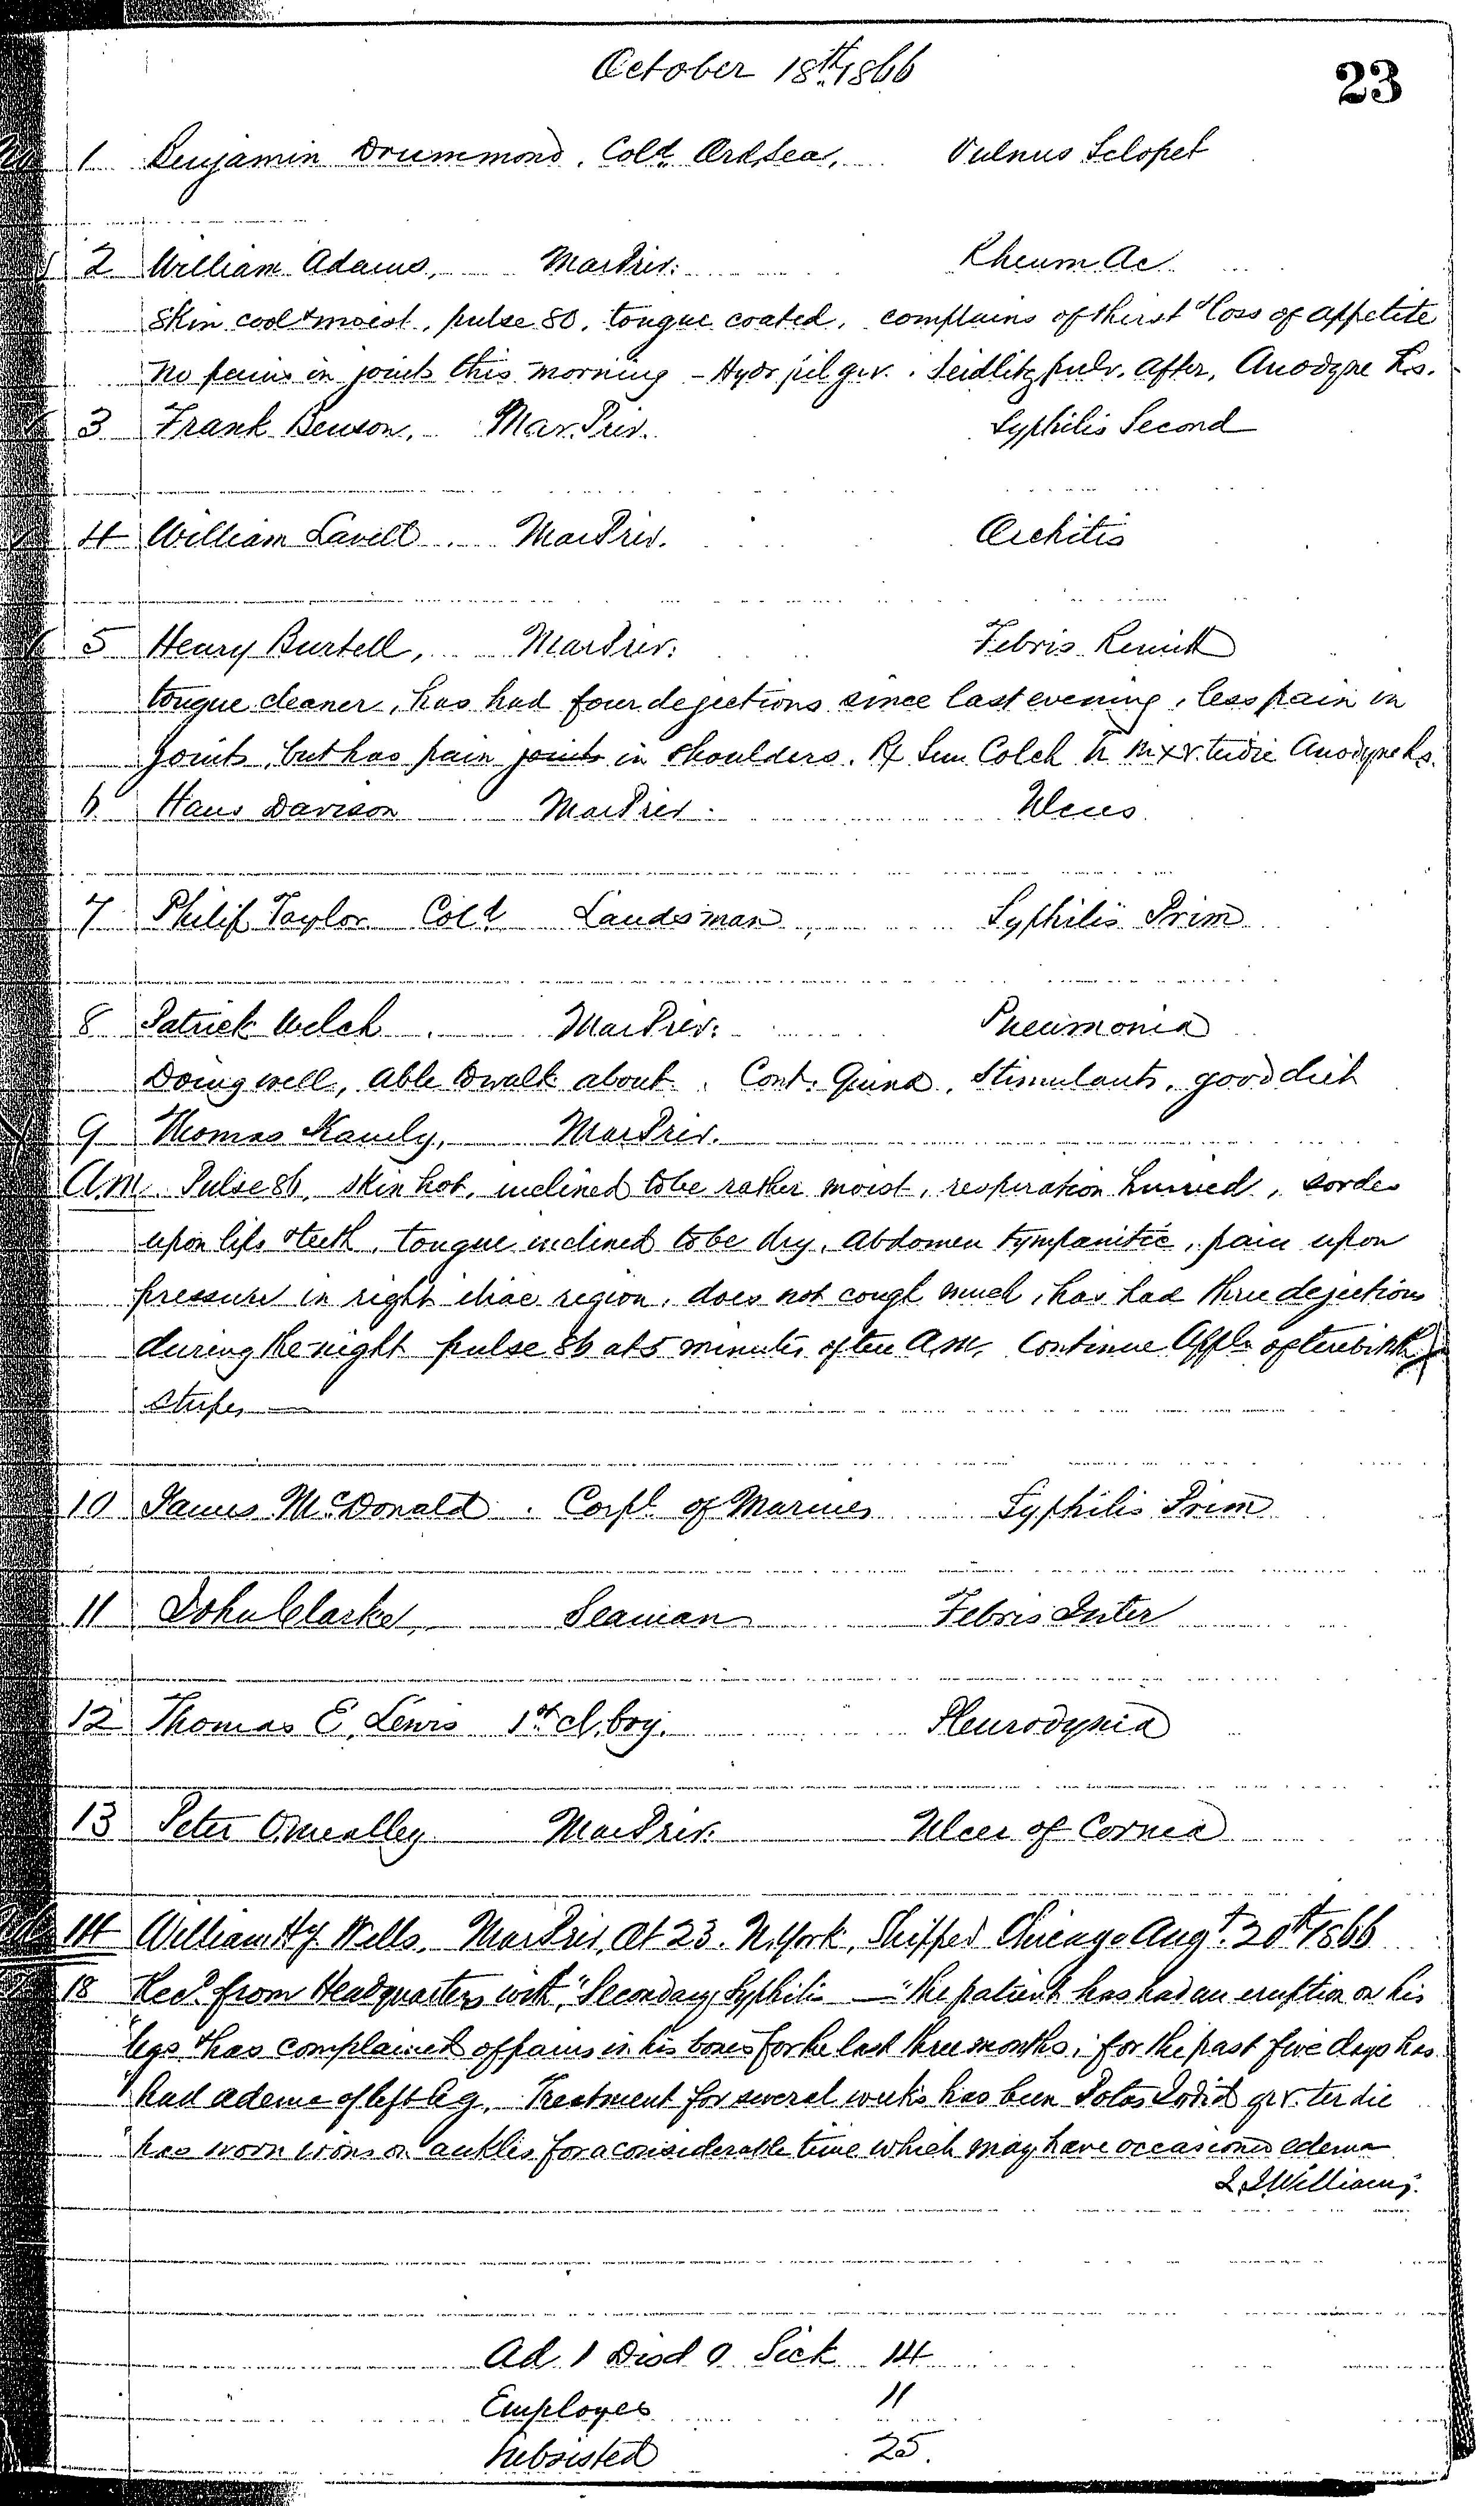 October 18th 1866
23
No 1 Benjamin Drummond, Cold. Ord, Sea, Vulnus Sclopet
2 William Adams, Mar Priv: Rheum Ac
Skin cool & moist, pulse 80, tongue coated, complains of thirst & loss of appetite
no pains in joints this morning - Hydr pil gr v. Seidlitz pulv. after, Anodyne h.s.
3 Frank Benson, Mar. Priv. Syphilis Second
4 William Lavell. Mar Priv. Orchitis
5 Henry Burtell, Mar Priv: Febris Remitt
tongue cleaner, has had four dejections since last evening, less pain in
joints, but has pain joints in shoulders. Rx Sem Colch Tr mxv. terdie Anodyne h.s.
6 Hans Davison Mar Priv. Ulcus
7 Philip Taylor Cold Landsman, Syphilis Prim
8 Patrick Welch. Mar Priv: Pneumonia
Doing well, able to walk about. Cont. Quina, Stimulants, good diet
9 Thomas Mar Priv.
A.M. Pulse 86, skin hot, inclined to be rather moist, respiration hurried, sordes
upon lips & teeth, tongue inclined to be dry, abdomen tympanitic, pain upon
pressure in right iliac region, does not cough much, has had three dejections
during the night pulse 86 at 5 minutes of ten A.M. Continue Appl. of terebinth
stupes
10 James McDonald. Corpl. of Marines Syphilis Prim
11 John Clarke, Seaman Febris Inter
12 Thomas E. Lewis 1st cl. boy. Pleurodynia
13 Peter Omealley Mar Priv. Ulcer of Cornea
14 William Hy. Wells. Mar Priv, Æt 23. N. York, Shipped Chicago Augt. 20th 1866
18 Recd. from Headquarters with, "Secondary Syphilis — "The patient has had an eruption on his
"legs & has complained of pains in his bones for the last three months; for the past five days has
"had adema of left leg. Treatment for several weeks has been Potas Iodid gr v. ter die
"has worn irons on ankles for a considerable time which may have occasioned edema
Williams.
Ad. 1 Disd 0 Sick 14
Employes 11
Subsisted 25.